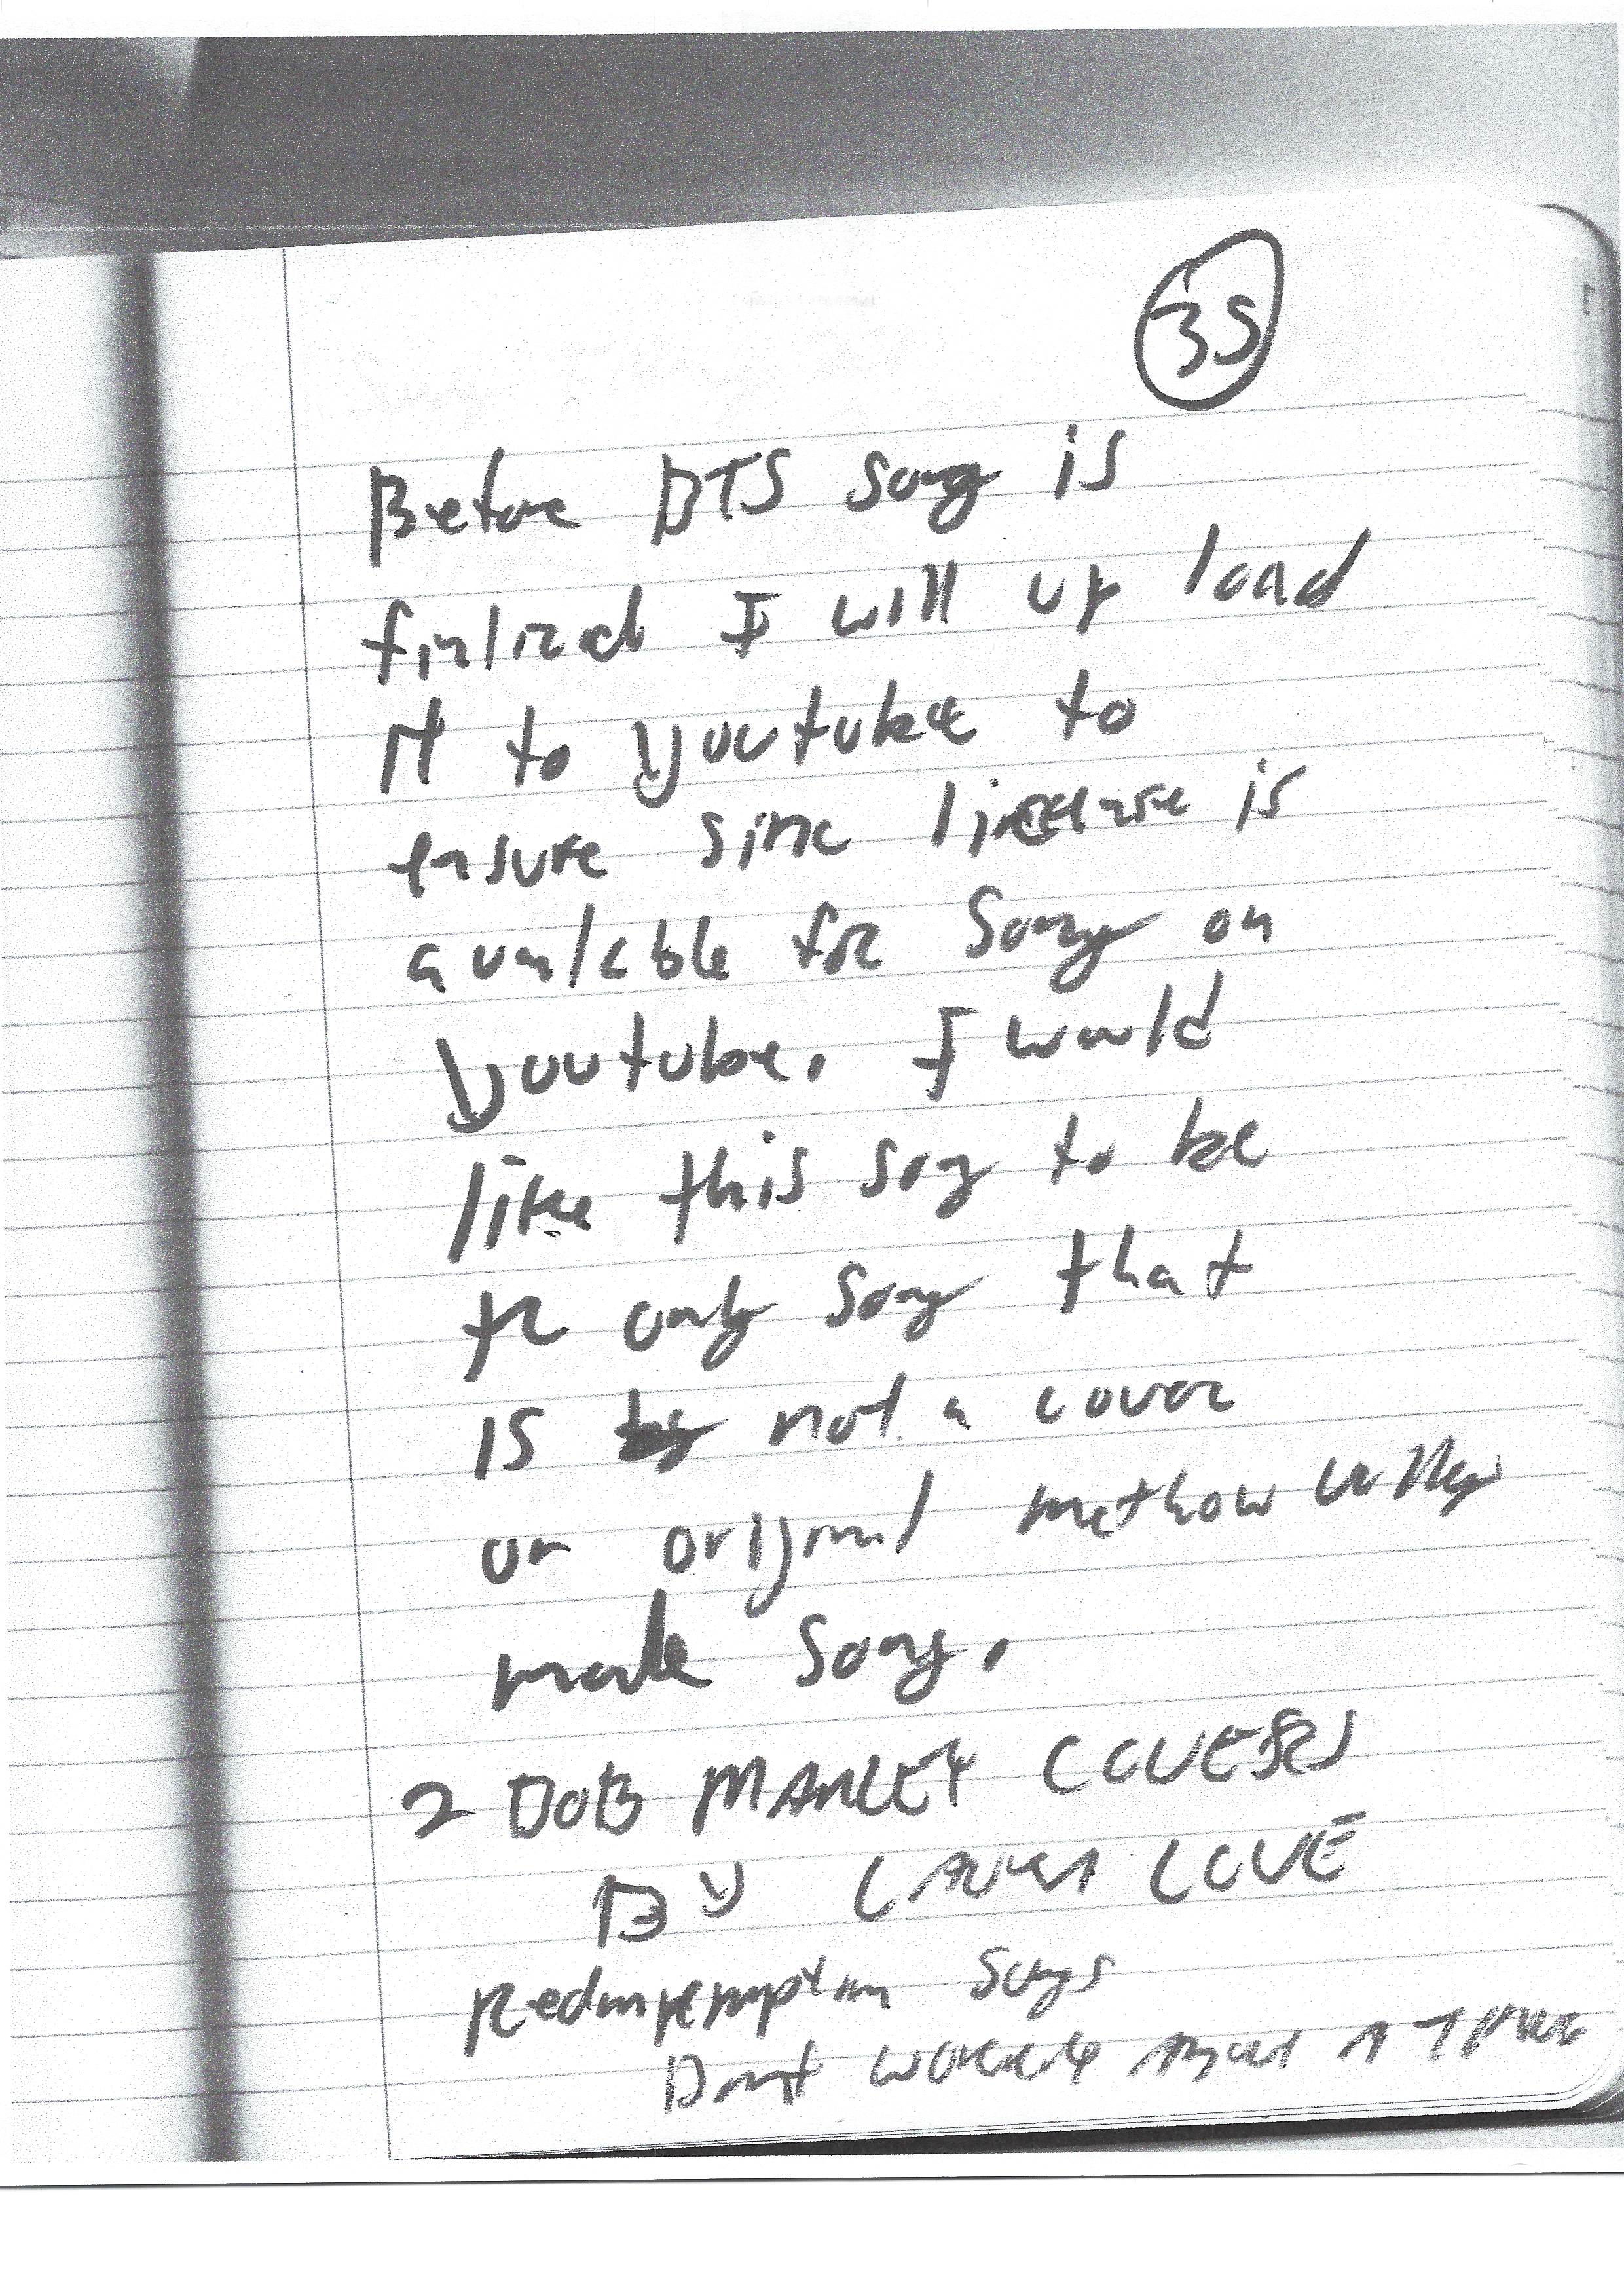 35
Before BTS song is
finlized I will up load
it to youtube to
ensure sinc license is
available for Song on
youtube. I would
like this sog to be
the only song that
is not a cover
or original methow valley
made song.
2 BOB MARLEY COVERS
By LAUREN LOVE
Songs
Dont